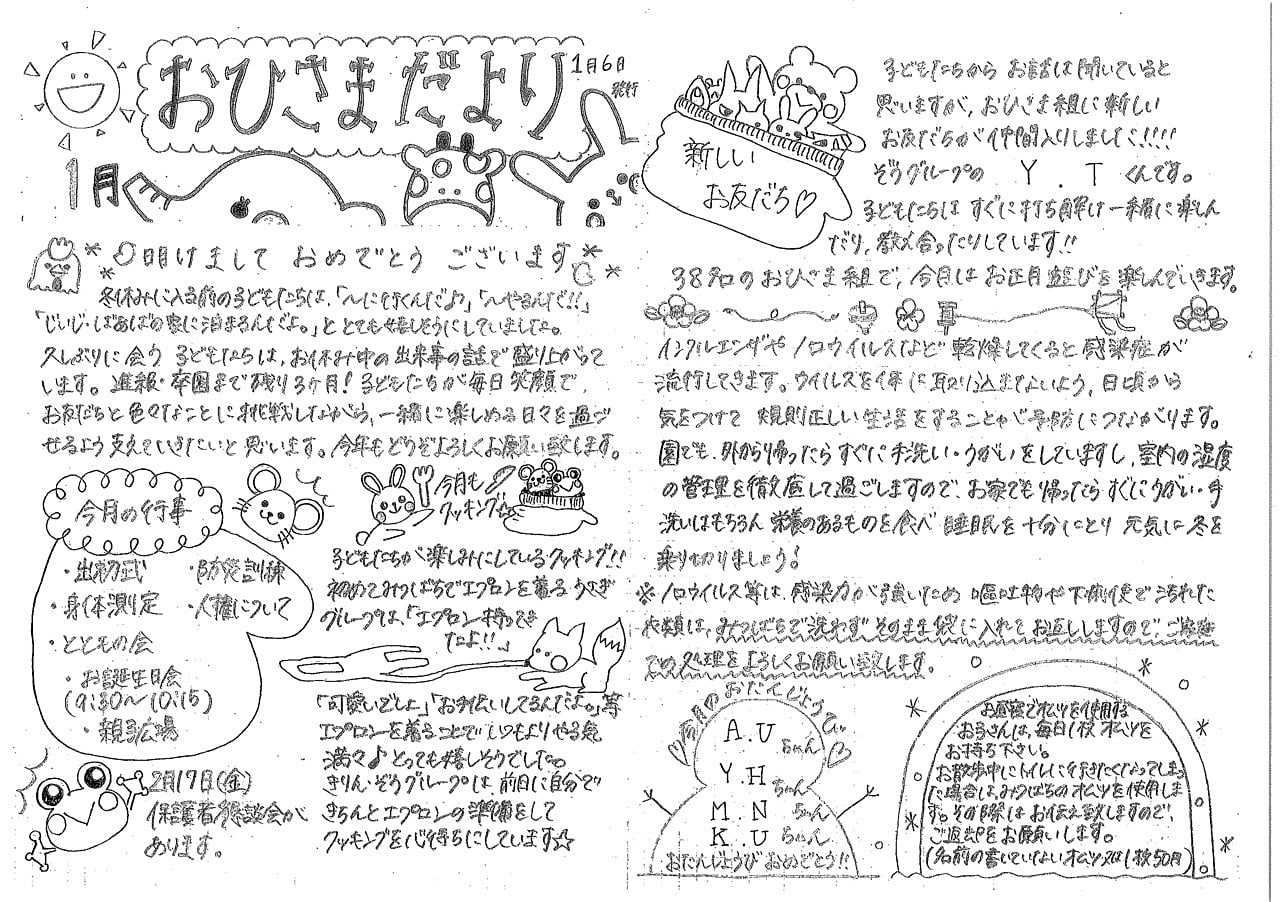 おひさまだより
1月6日
発行
1月
明けまして おめでとう ございます
冬休みに入る前の子どもたちは、「〜に行くんだよ?」「〜やるんだ!!」
「じいじ・ばあばの家に泊まるんだよ。」と とても嬉しそうにしていましたよ。
久しぶりに会う 子どもたちは、お休み中の出来事の話で盛り上がって
します。進級・卒園まで残り3ヶ月!子どもたちが毎日笑顔で、
お友だちと色々なことに挑戦しながら、一緒に楽しめる日々を過ご
せるよう支えていきたいと思います。今年もどうぞよろしくお願い致します。
今月の行事
・出初式 ・防災訓練
・身体測定 ・人権について
・とともの会
・お誕生日会
(9:30〜10:15)
・親子広場
2月17日(金)
保護者懇談会が
あります。
今月も
クッキング
子どもたちが楽しみにしているクッキング!!
初めてみつばちでエプロンを着る うさぎ
グループは、「エプロン持ってき
たよ!!」
「可愛いでしょ」「お手伝いしてるんだよ。」等
エプロンを着ることで いつもよりやる気
満々♪とっても嬉しそうでした。
きりん・ぞうグループは、前日に自分で
きちんとエプロンの準備をして
クッキングを心待ちにしています☆
新しい
お友だち♡
子どもたちから お話は聞いていると
思いますが、おひさま組に新しい
お友だちが仲間入りしました!!!!
ぞうグループの Y.T くんです。
子どもたちは すぐに打ち解け 一緒に楽しん
だり、教え合ったりしています!!
38名のおひさま組で、今月は お正月遊びを楽しんでいきます。
インフルエンザや ノロウイルスなど 乾燥してくると 感染症が
流行してきます。ウイルスを体に取り込まないよう、日頃から
気をつけて 規則正しい生活をすることが予防につながります。
園でも、外から帰ったら すぐに手洗い・うがいをしていますし、室内の湿度
の管理を徹底して過ごしますので、お家でも帰ったら すぐにうがい・手
洗いはもちろん 栄養のあるものを食べ 睡眠を十分にとり 元気に冬を
乗り切りましょう!
※ノロウイルス等は、感染力が強いため 嘔吐物や下痢便で汚れた
衣類は、みつばちで洗わず そのまま袋に入れてお返ししますので、ご家庭
での処理をよろしくお願い致します。
♡今月のおたんじょうび♡
A.U ちゃん
Y.H ちゃん
M.N ちゃん
K.U ちゃん
おたんじょうび おめでとう!!
お昼寝でオムツを使用する
お子さんは、毎日1枚オムツを
お持ち下さい。
お散歩中にトイレに行きたくなってしまっ
た場合は、みつばちのオムツを使用しま
す。その際はお伝え致しますので、
ご返却をお願いします。
(名前の書いていないオムツ又は1枚50円)